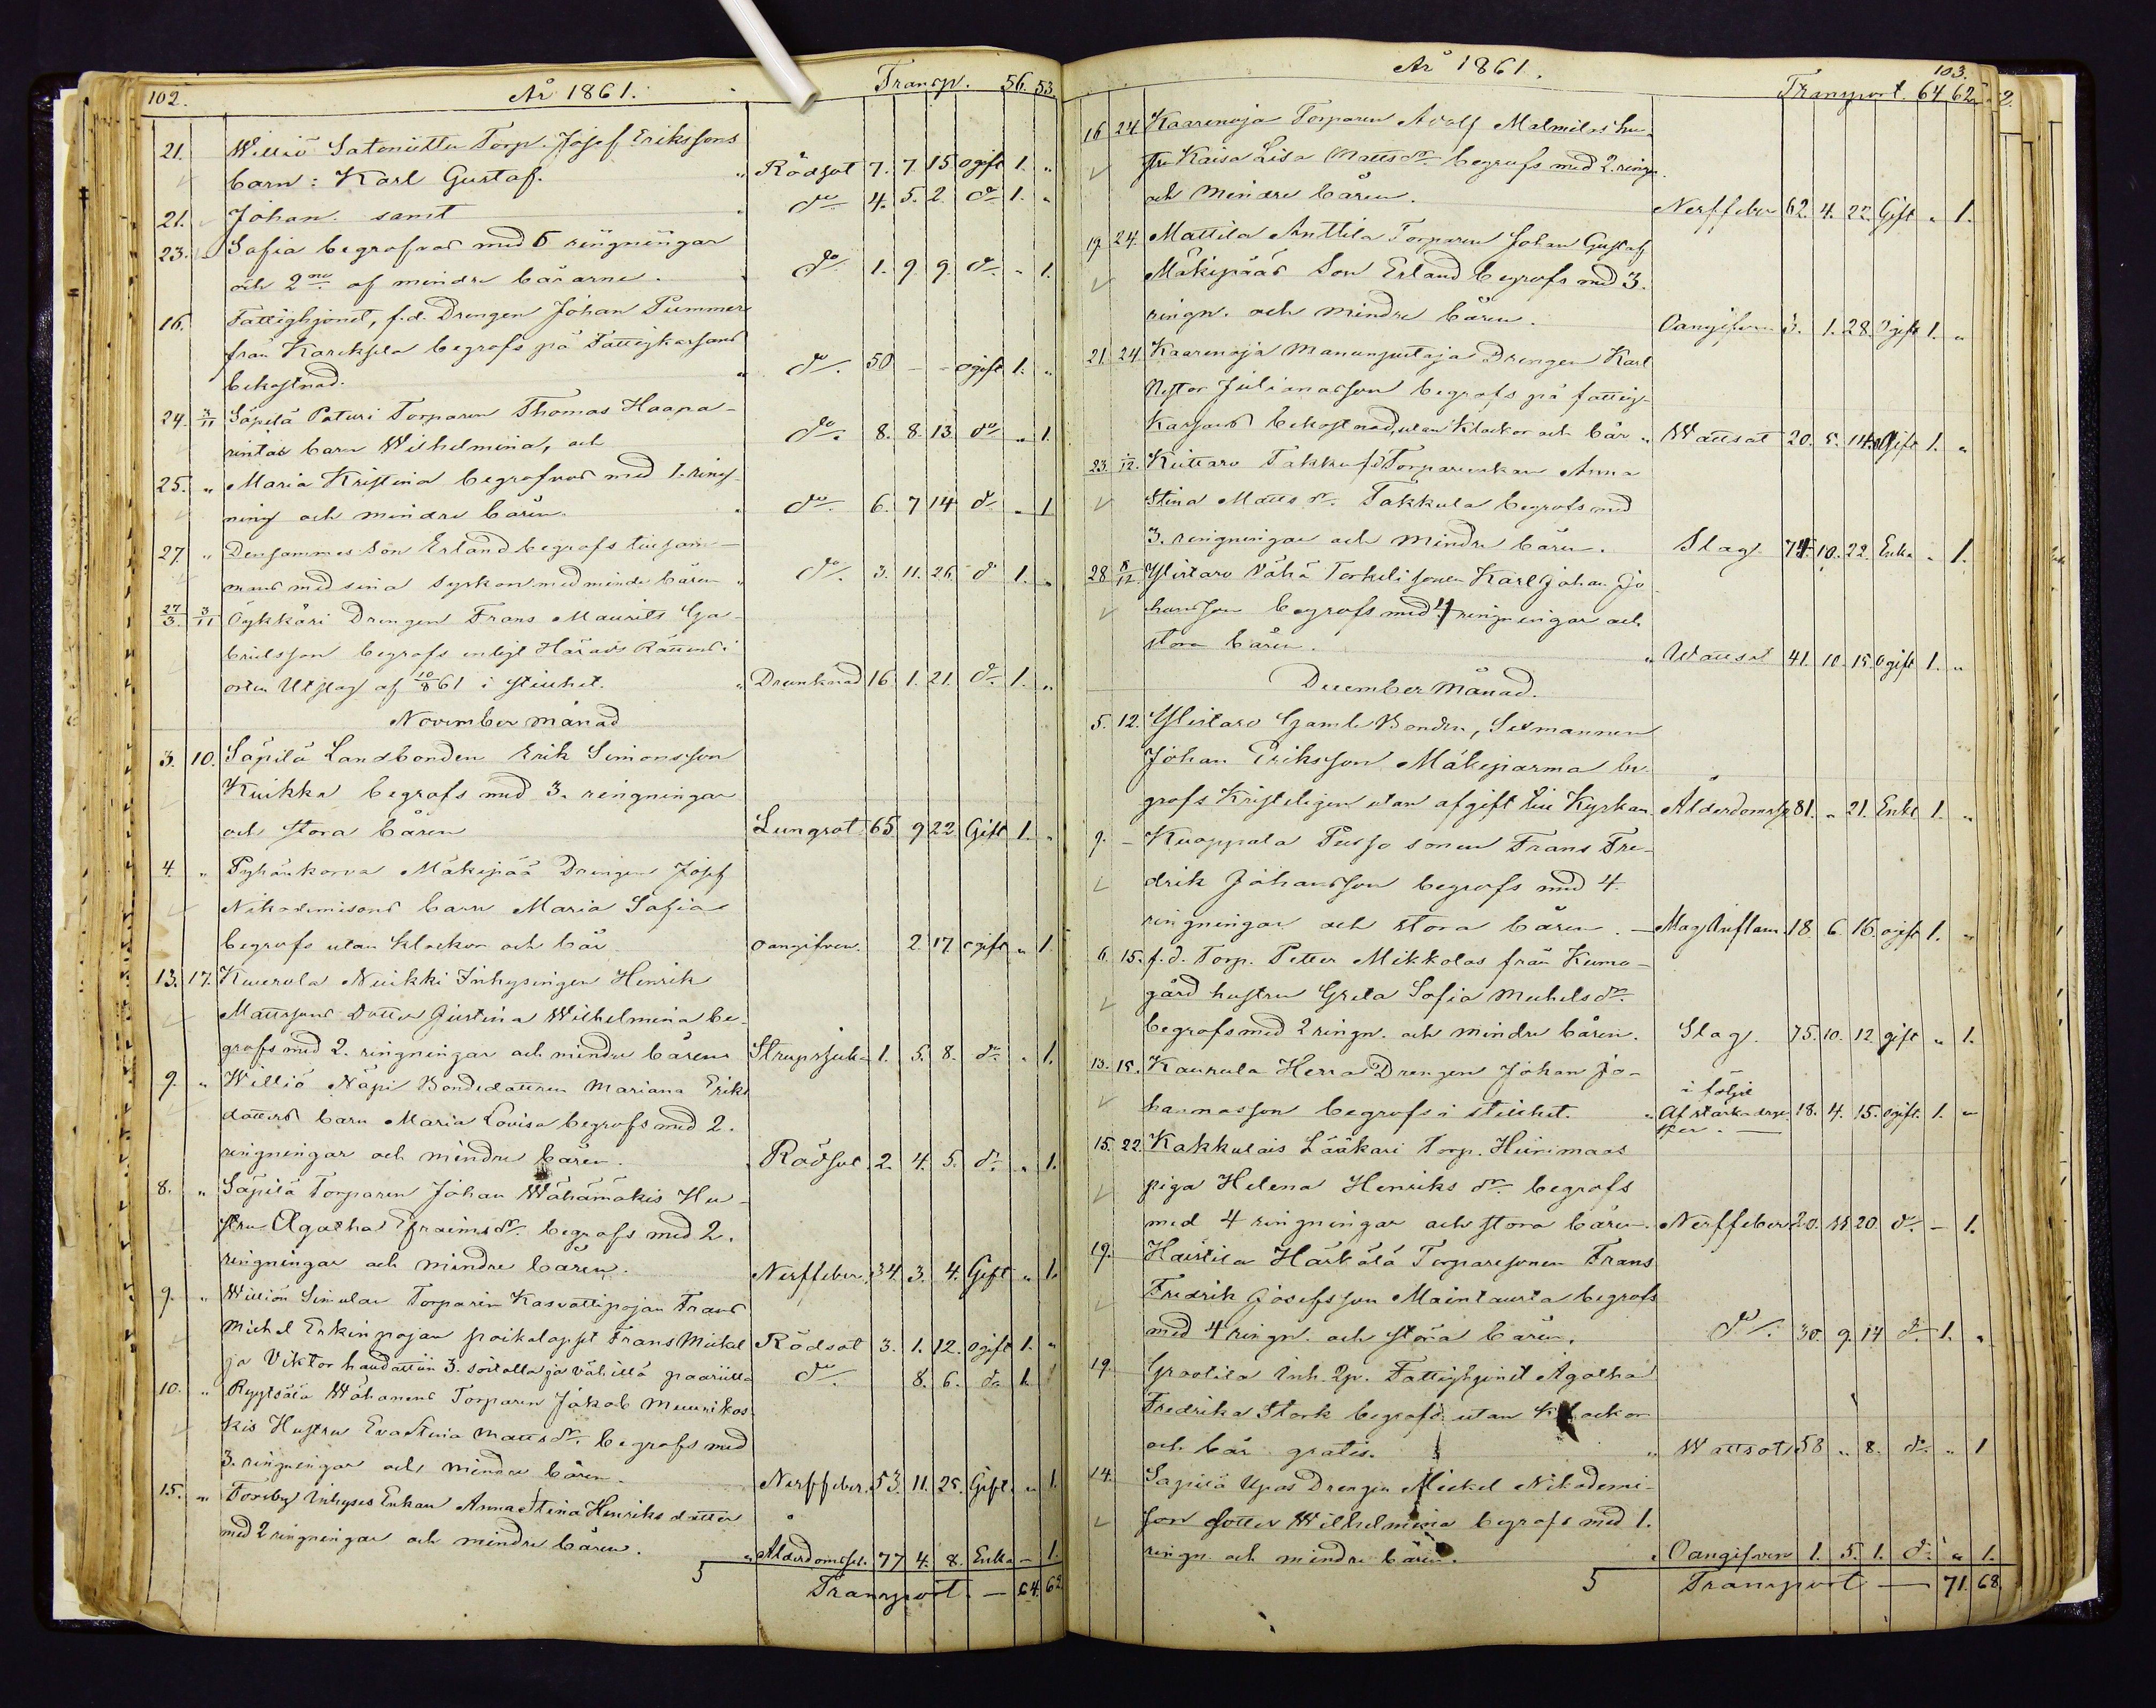 102. År 1861. Transp. 56. 53.
21. Williö Satoniittu Torp. Josef Erikssons
barn: Karl Gustaf. " Rödsot 7. 7. 15 ogift 1. "
21. Johan samt " do 4. 5. 2. do 1. "
23. Sofia begrofvos med 5 ringningar
och 2ne af mindre bårarne. " do 1. 9. 9. do " 1.
16. Fattighjonet, f.d. Drengen Johan Pummer
från Kareksela begrofs på Fattigkassans
bekostnad. " do 50 - - ogift 1. "
24. 3/11 Säpilä Paturi Torparen Thomas Haapa-
rintas barn Wilhelmina, och do 8. 8. 13. do " 1.
25. " Maria Kristina begrofvos med 1. ring-
ning och mindre båren. " do 6. 7 14 do " 1
27. " Densammes Son Erland begrofs tillsam-
mans med sina syskon med mindre båren " do 3. 11. 26. do 1. "
27/3. 3/11 Öykkäri Drengen Frans Maurits Ga-
brielsson begrofs enligt Härads Rättens i
orten Utslag af 10/8 61 i stillhet. " Drunknad 16 1. 21. do 1. "
November månad
3. 10. Säpilä Landbonden Erik Simonsson
Kuikka begrofs med 3. ringningar
och stora båren Lungsot 65 9 22 Gift 1. "
4. " Pyhänkorva Mäkipää Drengen Josef
Nikodemisons barn Maria Sofia
begrofs utan klockor och bår oangifven. 2. 17 ogift " 1.
13. 17. Kuurola Nuikki Inhysingen Henrik
Mattssons dotter Justina Wilhelmina be-
grofs med 2. ringningar och mindre båren Strupsjuk- 1. 5. 8. do " 1.
9. " Williö Näpi Bondedottren Mariana Eriks
dotters barn Maria Lovisa begrofs med 2.
ringningar och mindre båren. " Rödsot 2. 4. 5. do " 1.
8. " Säpilä Torparen Johan Wähämäkis Hu-
stru Agatha Efraimsdr. begrofs med 2.
ringningar och mindre båren. Nerffeber. 34. 3. 4. Gift " 1.
9. " Williön Simulan Torparin Kasvattipojan Frans
Michel Erkinpojan poikalapset Frans Mickel Rödsot 3. 1. 12. ogift 1. "
ja Viktor haudattiin 3. soitolla ja vähillä paariilla do 8. 6. do 1.
10. " Ryytsälä Wähänens Torparen Jakob Muurikos-
kis Hustru Eva Stina Mattsdr. begrofs med
3. ringningar och mindre båren. Nerffeber. 53. 11. 25. Gift. " 1.
15. " Forsby Inhyses Enkan Anna Stina Henriksdotter
med 2 ringningar och mindre båren. " Ålderdomssv. 77 4. 8. Enka - 1.
5 Transport. - 64. 62
År 1861. 103.
Transport 64 62
16 24 Kaarenoja Torparen Adolf Malmilas hu-
stru Kaisa Lisa Mattsdr. begrofs med 2. ringn.
och mindre båren. Nerffeber 62. 4. 22. Gift " 1.
19. 24. Mattila Anttila Torparen Johan Gustaf
Mäkipääs Son Erland begrofs med 3.
ringn. och mindre båren. Oangifven 3. 1. 28. Ogift 1. "
21. 24. Kaarenoja Drengen Karl
Nestor Julianasson begrofs på fattig-
kassans bekostnad, utan klockor och bår " Wattsot 20. 5. 14. Ogift 1. "
23. 1/12. Kiettaro Takku fd Torpareenkan Anna
Stina Mattsdr. Takkula begrofs med
3. ringningar och mindre båren. Slag. 74. 10. 22. Enka " 1.
28 8/12 Ylistaro Vähä Torkeli sonen Karl Johan Jo-
hansson begrofs med 4 ringningar och
stora båren. " Wattsot 41. 10. 15. Ogift 1. "
December Månad.
5. 12. Ylistaro Gamle Bonden, Sexmannen
Johan Eriksson Mäkiparma be-
grofs Kristeligen utan afgift till Kyrkan Ålderdomssv 81. " 21. Enkl 1. "
9. - Kuoppala Pusso sonen Frans Fre-
drik Johansson begrofs med 4.
ringningar och stora båren. - Mag Inflam. 18. 6. 16. ogift 1. "
6. 15. f.d. Torp. Petter Mikkolas från Kumo-
gård hustru Greta Sofia Michelsdr.
begrofs med 2 ringn. och mindre båren. Slag. 75. 10. 12. gift " 1.
13. 15. Kaurula Herra Drengen Johan Jo- i följd
hannasson begrofs i stillhet. " Af starka dryc- 18. 4. 15. ogift. 1. "
ker. -
15. 22. Kakkulais Lääkäri Torp. Hiirimaas
piga Helena Henriksdr. begrofs
med 4 ringningar och stora båren. Nerffeber 20. 11 20 do - 1.
19. Haistila Härkälä Torparesonen Frans
Fredrik Josefsson Maintausta begrofs
med 4 ringn. och stora båren. do 30. 9. 14 do 1. "
19. Graatila Inh. 2p. Fattighjonet Agatha
Fredrika Stork begrofs utan klockor
och bår gratis. " Wattsot 58 " 8. do " 1
14. Säpilä Upas Drengen Mickel Nikodemi-
son dotter Wilhelmina begrofs med 1.
ringn. och mindre båren. " Oangifven 1. 5. 1. do " 1.
5 Transport - 71. 68